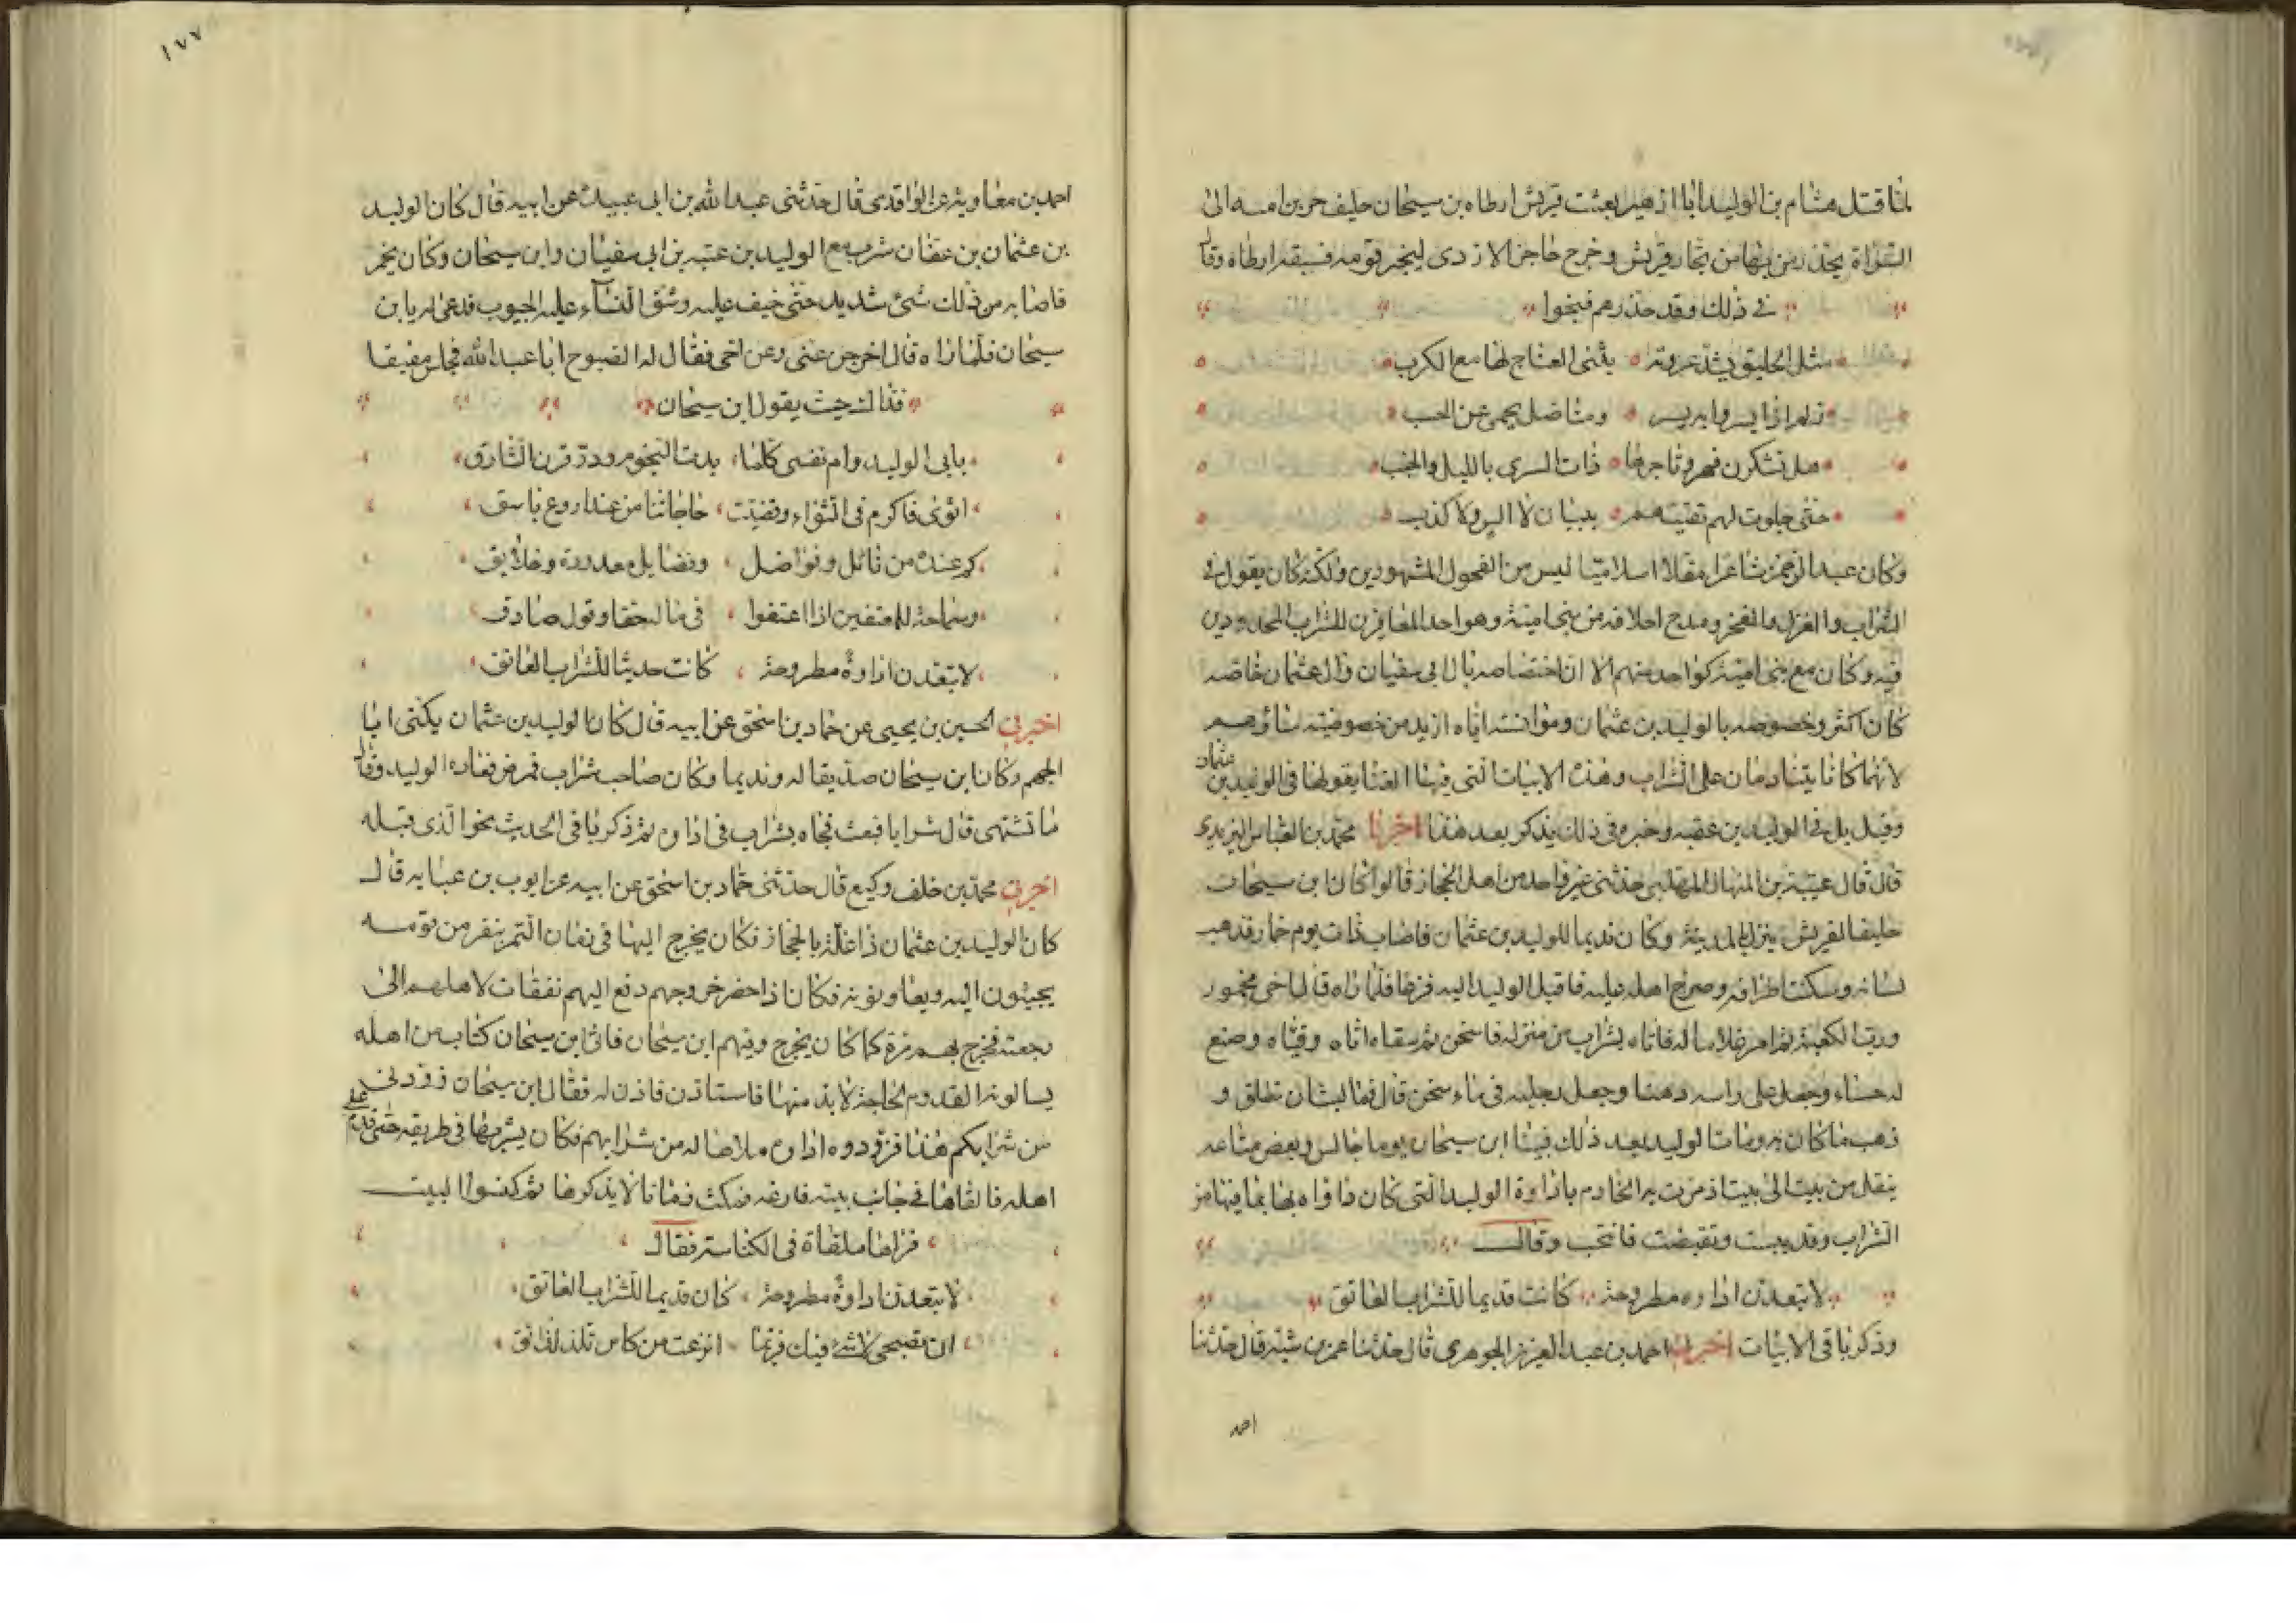 لما قتل هشام بن الوليد ابا ازيهر بعثت قريش ارطاه بن سيحان حليف حرب بن اميه الى
السراة يحذر من بها من تجار قريش وخرج حاجز الازدى ليخبر قومه فسبقه ارطاه وقال
في ذلك وقد حذرهم فنجوا
مثل الحليق يشد عروته يثنى العناج لها مع الكرب
زلم اذا يسروا به يسر ومناضل يحمى عن الحسب
هل تشكرن فهر وتاجرها ذات السرى بالليل والخبب
حتى جلوت لهم يقينهم ببيان لا الس ولا كذب
وكان عبد الرحمن شاعرا مقلا اسلاميا ليس من الفحول المشهورين ولكنه كان يقول في
الشراب والغزل والفخر ومدح احلافه من بنى امية وهو احد المعاقرين للشراب المحدودين
فيه وكان مع بنى امية كواحد منهم الا ان اختصاصه بال ابى سفيان وال عثمان خاصه
كان اكثر وخصوصه بالوليد بن عثمان ومؤانسته اياه ازيد من خصوصيته بسائرهم
لانهما كانا يتنادمان على الشراب وهذه الابيات التى فيها الغنا يقولها فى الوليد بن عثمان
وقيل بل فى الوليد بن عقبه وخبره فى ذلك يذكر بعد هذا اخبرنا محمد بن العباس اليزيدى
قال قال عيينة بن المنهال المهلبى حدثنى غير واحد من اهل الحجاز قالوا كان ابن سيحان
حليفا لقريش ينزل بالمدينة وكان نديما للوليد بن عثمان فاصاب ذات يوم خمار فذهب
لسانه وسكنت اطرافه وصرخ اهله عليه فاقبل الوليد اليه فزعا فلما راه قال اخى مخمور
ورب الكعبة ثم امر غلاما له فاتاه بشراب من منزله فاسخن ثم سقاه اياه وقياه وصنع
له حساء وجعل على راسه دهنا وجعل رجليه فى ماء سخن قال فما لبث ان تطلق و
ذهب ما كان به ومات الوليد بعد ذلك فبينا ابن سيحان يوما جالس وبعض متاعه
ينقل من بيت الى بيت اذ مرت به الخادم باداوة الوليد التى كان داواه بها بما فيها من
الشراب وقد يبست وتقبضت فانتحب وقال
لا تبعدن اداوه مطروحة كانت قديما للشراب العاتق
وذكر باقى الابيات اخبرنا احمد بن عبد العزيز الجوهرى قال حدثنا عمر بن شبة قال حدثنا
احمد
١٧٧
احمد بن معاوية عن الواقدى قال حدثنى عبد الله بن ابى عبيدة عن ابيه قال كان الوليد
بن عثمان بن عفان شرب مع الوليد بن عتبه بن ابى سفيان وابن سيحان وكان يخمر
فاصابه من ذلك شئ شديد حتى خيف عليه وشق النساء عليه الجيوب فدعى له بابن
سيحان فلما راه قال اخرجن عنى وعن اخى فقال له الصبوح ابا عبد الله فجلس مفيقا
فذلك حيث يقول ابن سيحان
بابى الوليد وام نفسى كلما بدت النجوم وذر قرن الشارق
اثوى فاكرم فى الثواء وقضيت حاجاتنا من عند اروع باسق
كم عنده من نائل وفواضل وفضايل معدودة وخلايق
وسماحة للمعتفين اذا اعتفوا فى ماله حقا وقول صادق
لا تبعدن اداوة مطروحة كانت حديثا للشراب العاتق
اخبرنى الحسين بن يحيى عن حماد بن اسحق عن ابيه قال كان الوليد بن عثمان يكنى ابا
الجهم وكان ابن سيحان صديقا له ونديما وكان صاحب شراب فمرض فعاده الوليد وقال
ما تشتهى قال شرابا فبعث فجاه بشراب فى اداوه ثم ذكر باقى الحديث نحو الذى قبله
اخبرنى محمد بن خلف وكيع قال حدثنى حماد بن اسحق عن ابيه عن ايوب بن عبايه قال
كان الوليد بن عثمان ذا غلة بالحجاز فكان يخرج اليها فى زمان التمر بنفر من قومه
يجيئون اليه ويعاونونه فكان اذا حضر خروجهم دفع اليهم نفقات لاهلهم الى
رجعته فخرج بهم مرة كما كان يخرج وفيهم ابن سيحان فاتى ابن سيحان كتاب من اهله
يسالونه القدوم لحاجة لا بد منها فاستاذن فاذن له فقال ابن سيحان زودنى
من شرابكم هذا فزودوه اداوه ملاها له من شرابهم فكان يشربها فى طريقه حتى قدم على
اهله فالقاها في جانب بيته فارغه فمكث زمانا لا يذكرها ثم كنسوا البيت
فراها ملقاة فى الكناسة فقال
لا تبعدن اداوة مطروحة كان قديما للشراب العاتق
ان تصبحى لا شئ فيك فربما انزعت من كاس تلذ لذائق